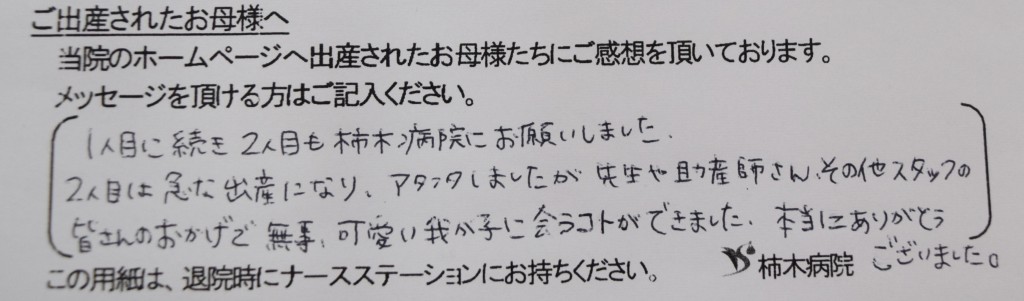 ご出産されたお母様へ
当院のホームページへ出産されたお母様たちにご感想を頂いております。
メッセージを頂ける方はご記入ください。
1人目に続き2人目も柿木病院にお願いしました.
2人目は急な出産になり、アタフタしましたが先生や助産師さん、その他スタッフの
皆さんのおかげで無事、可愛い我が子に会うコトができました. 本当にありがとう
ございました。
この用紙は、退院時にナースステーションにお持ちください。
柿木病院